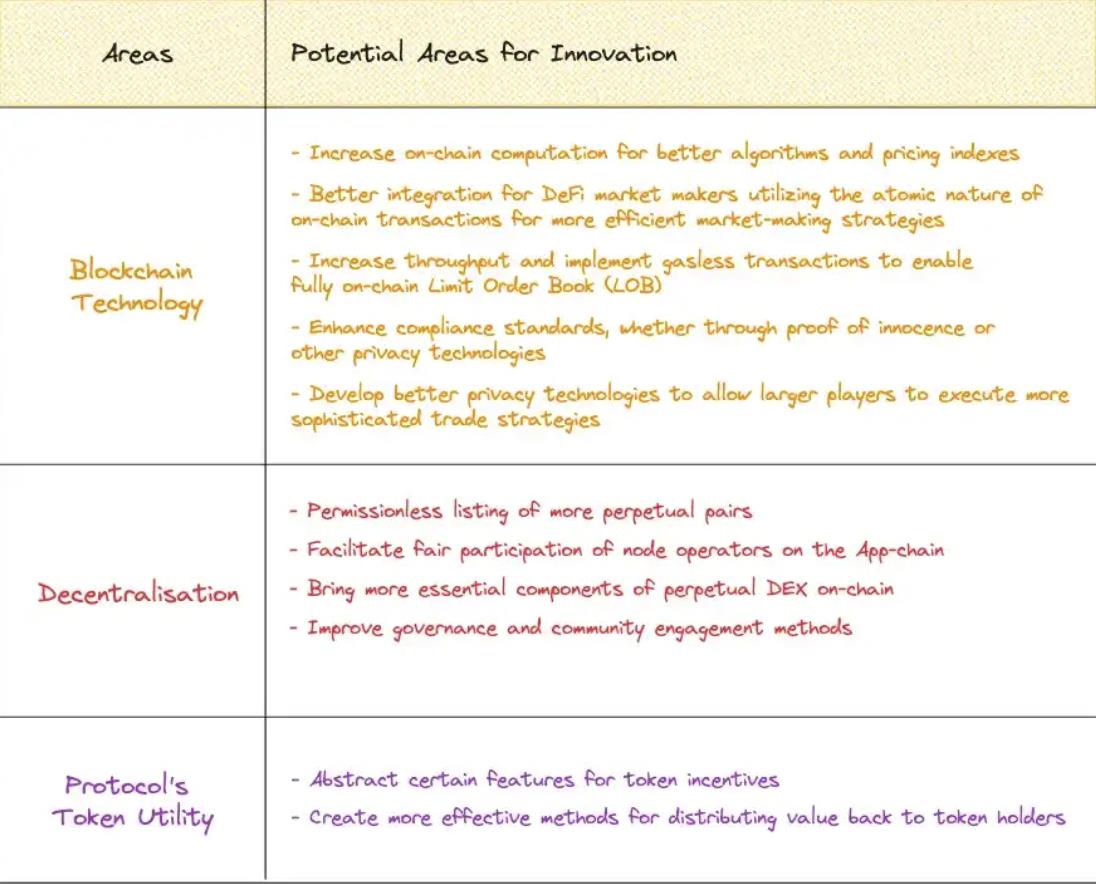 Areas
Potential Areas for Innovation
Blockchain
Technology
- Increase on-chain computation for better algorithms and pricing indexes
- Better integration for DeFi market makers utilizing the atomic nature of
on-chain transactions for more efficient market-making strategies
- Increase throughput and implement gasless transactions to enable
fully on-chain Limit Order Book (LOB)
- Enhance compliance standards, whether through proof of innocence or
other privacy technologies
- Develop better privacy technologies to allow larger players to execute more
sophisticated trade strategies
Decentralisation
- Permissionless listing of more perpetual pairs
- Facilitate fair participation of node operators on the App-chain
- Bring more essential components of perpetual DEX on-chain
- Improve governance and community engagement methods
Protocol's
Token Utility
- Abstract certain features for token incentives
- Create more effective methods for distributing value back to token holders